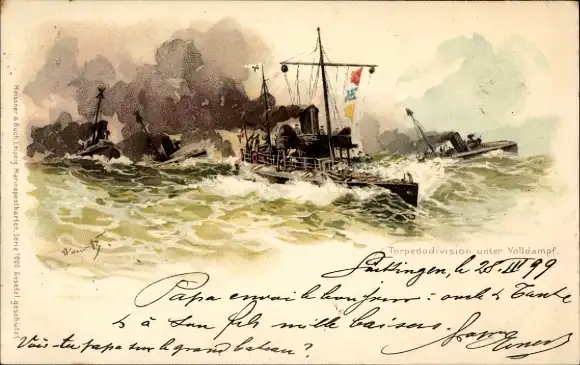 Meissner & Buch, Leipzig Marinepostkarten, Serie 1000. Gesetzl. geschützt.
Torpedodivision unter Volldampf.
le 28. IV 99
Papa envoi le bonjour : oncle & Tante
& à son fils mille baisers.
Vois-tu papa sur le grand bateau?